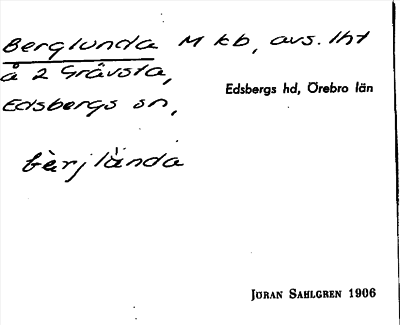 Berglunda M kb, avs. lht
å 2 Gråvsta,
Edsbergs sn,
Edsbergs hd, Örebro län
bèrjlànda
JÖRAN SAHLGREN 1906